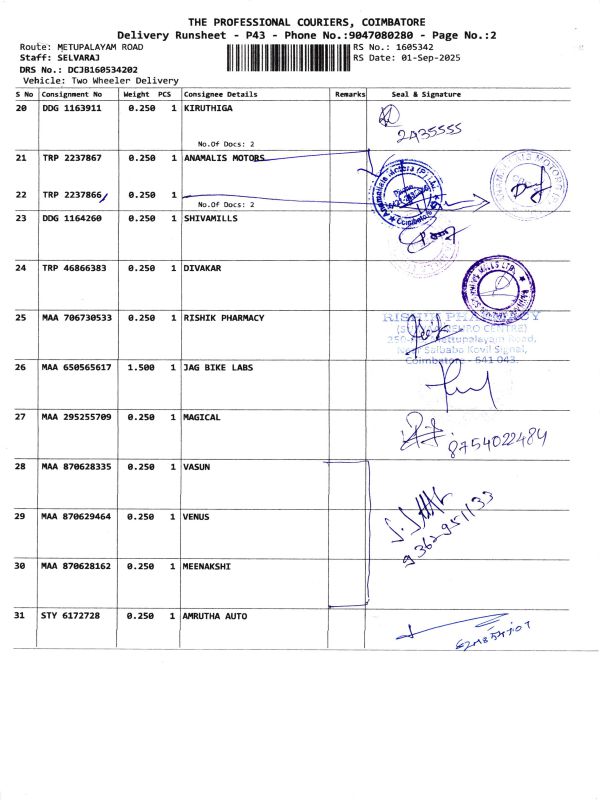 THE PROFESSIONAL COURIERS, COIMBATORE
Delivery Runsheet - P43 - Phone No.:9047080280 - Page No.:2
Route: METUPALAYAM ROAD RS No.: 1605342
Staff: SELVARAJ RS Date: 01-Sep-2025
DRS No.: DCJB160534202
Vehicle: Two Wheeler Delivery
S No Consignment No Weight PCS Consignee Details Remarks Seal & Signature
20 DDG 1163911 0.250 1 KIRUTHIGA
No.Of Docs: 2
21 TRP 2237867 0.250 1 ANAMALIS MOTORS
22 TRP 2237866 0.250 1
No.Of Docs: 2
23 DDG 1164260 0.250 1 SHIVAMILLS
24 TRP 46866383 0.250 1 DIVAKAR
25 MAA 706730533 0.250 1 RISHIK PHARMACY
RISHIK PHARMACY
Saibaba Kovil Signal,
Coimbatore - 641 043.
26 MAA 650565617 1.500 1 JAG BIKE LABS
27 MAA 295255709 0.250 1 MAGICAL
8754022484
28 MAA 870628335 0.250 1 VASUN
29 MAA 870629464 0.250 1 VENUS
9362951133
30 MAA 870628162 0.250 1 MEENAKSHI
31 STY 6172728 0.250 1 AMRUTHA AUTO